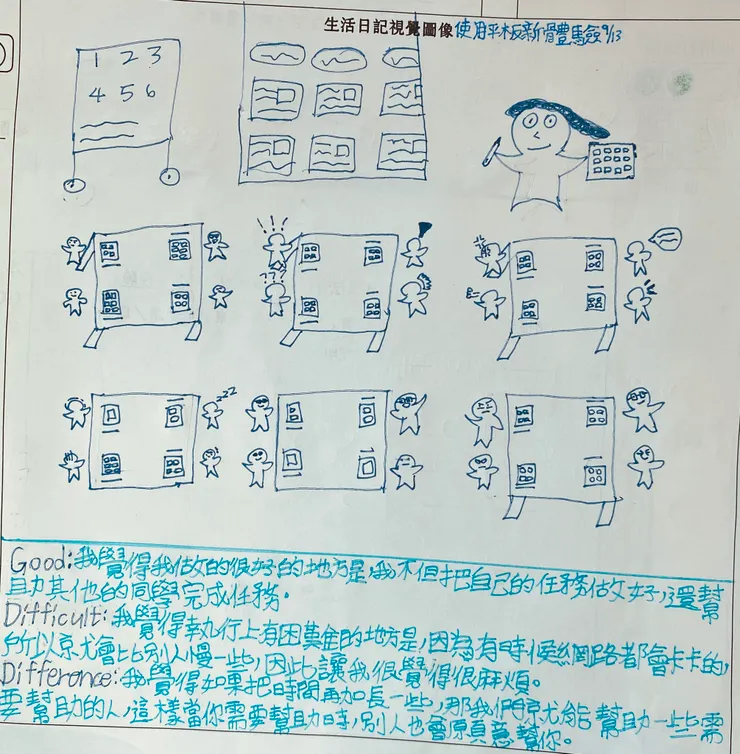 生活日記視覺圖像使用平板新體驗9/13
1 2 3
4 5 6
???
zzz
Good:我覺得我做的很好的地方是,我不但把自己的任務做好,還幫
助其他的同學完成任務。
Difficult:我覺得執行上有困難的地方是,因為有時候網路都會卡卡的,
所以京尤會比別人慢一些,因此讓我很覺得很麻煩。
Difference:我覺得如果把時間再加長一些,那我們就能幫助一些需
要幫助的人,這樣當你需要幫助時,別人也會願意幫你。